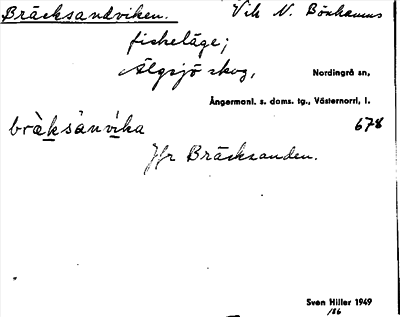 Bräcksandviken. Vik N. Bönhamns
fiskeläge;
Älgsjö skog, Nordingrå sn,
Ångermanl. s. doms. tg., Västernorrl. l.
bràksànvika 678
Jfr Bräcksanden.
Sven Hiller 1949
186